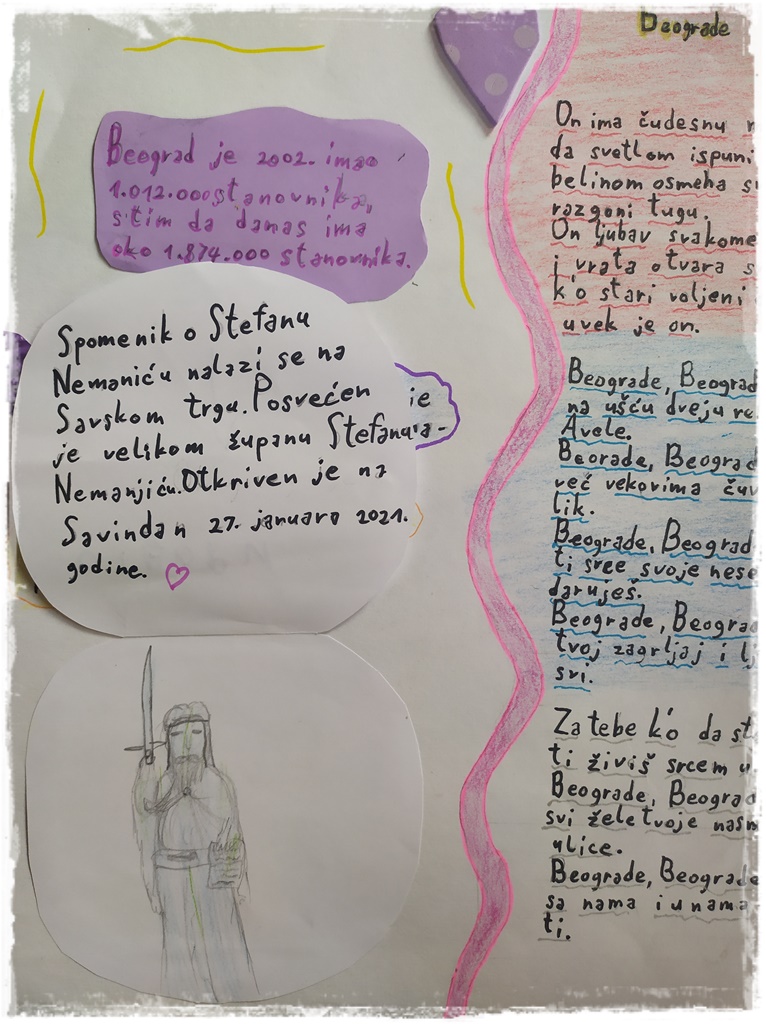 Beograd je 2002. imao
1.012.000 stanovnika,
s tim da danas ima
oko 1.874.000 stanovnika.
Spomenik o Stefanu
Nemaniću nalazi se na
Savskom trgu. Posvećen je
je velikom županu Stefanu
Nemanjiću. Otkriven je na
Savindan 27. januara 2021.
godine.
Beograde
On ima čudesnu
da svetlom ispuni
belinom osmeha
razgoni tugu.
On ljubav svakome
i vrata otvara
k'o stari voljeni
uvek je on.
Beograde, Beograd
na ušću dveju
Avele.
Beorade, Beograd
već vekovima
lik.
Beograde, Beograd
ti srce svoje
daruješ.
Beograde, Beograd
tvoj zagrljaj i
svi.
Za tebe k'o da
ti živiš srcem
Beograde, Beograd
svi žele tvoje
ulice.
Beograde, Beograde
sa nama i u nama
ti.